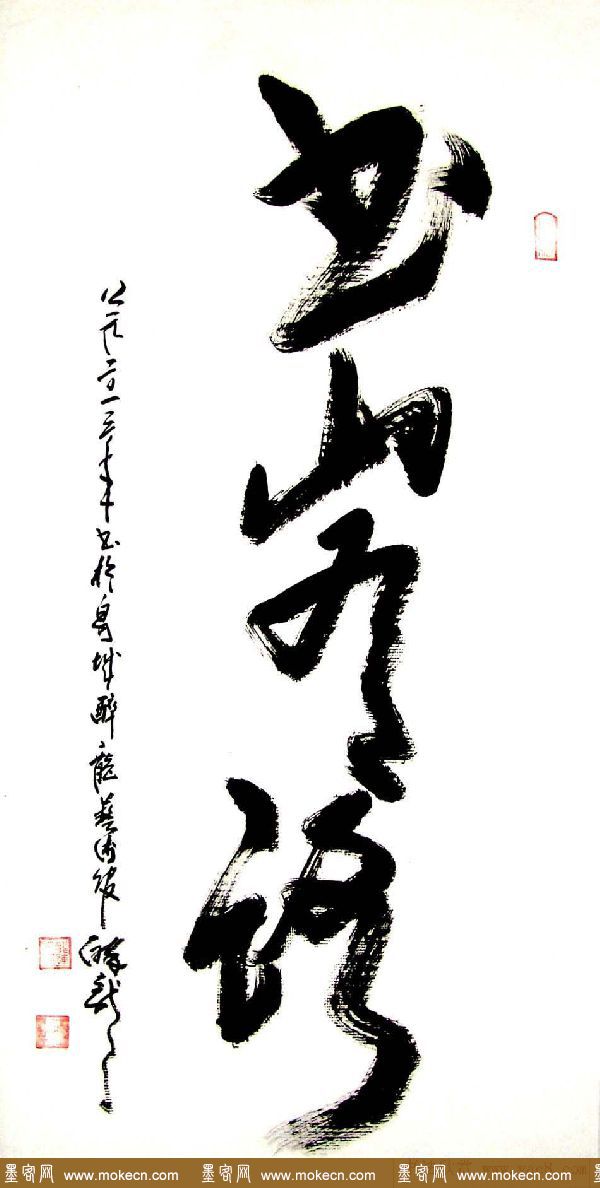 书山有路
公元二〇一三年 书於 城醉龍藝術
墨客网 www.mokecn.com 墨客网 www.mokecn.com 墨客网 www.mokecn.com